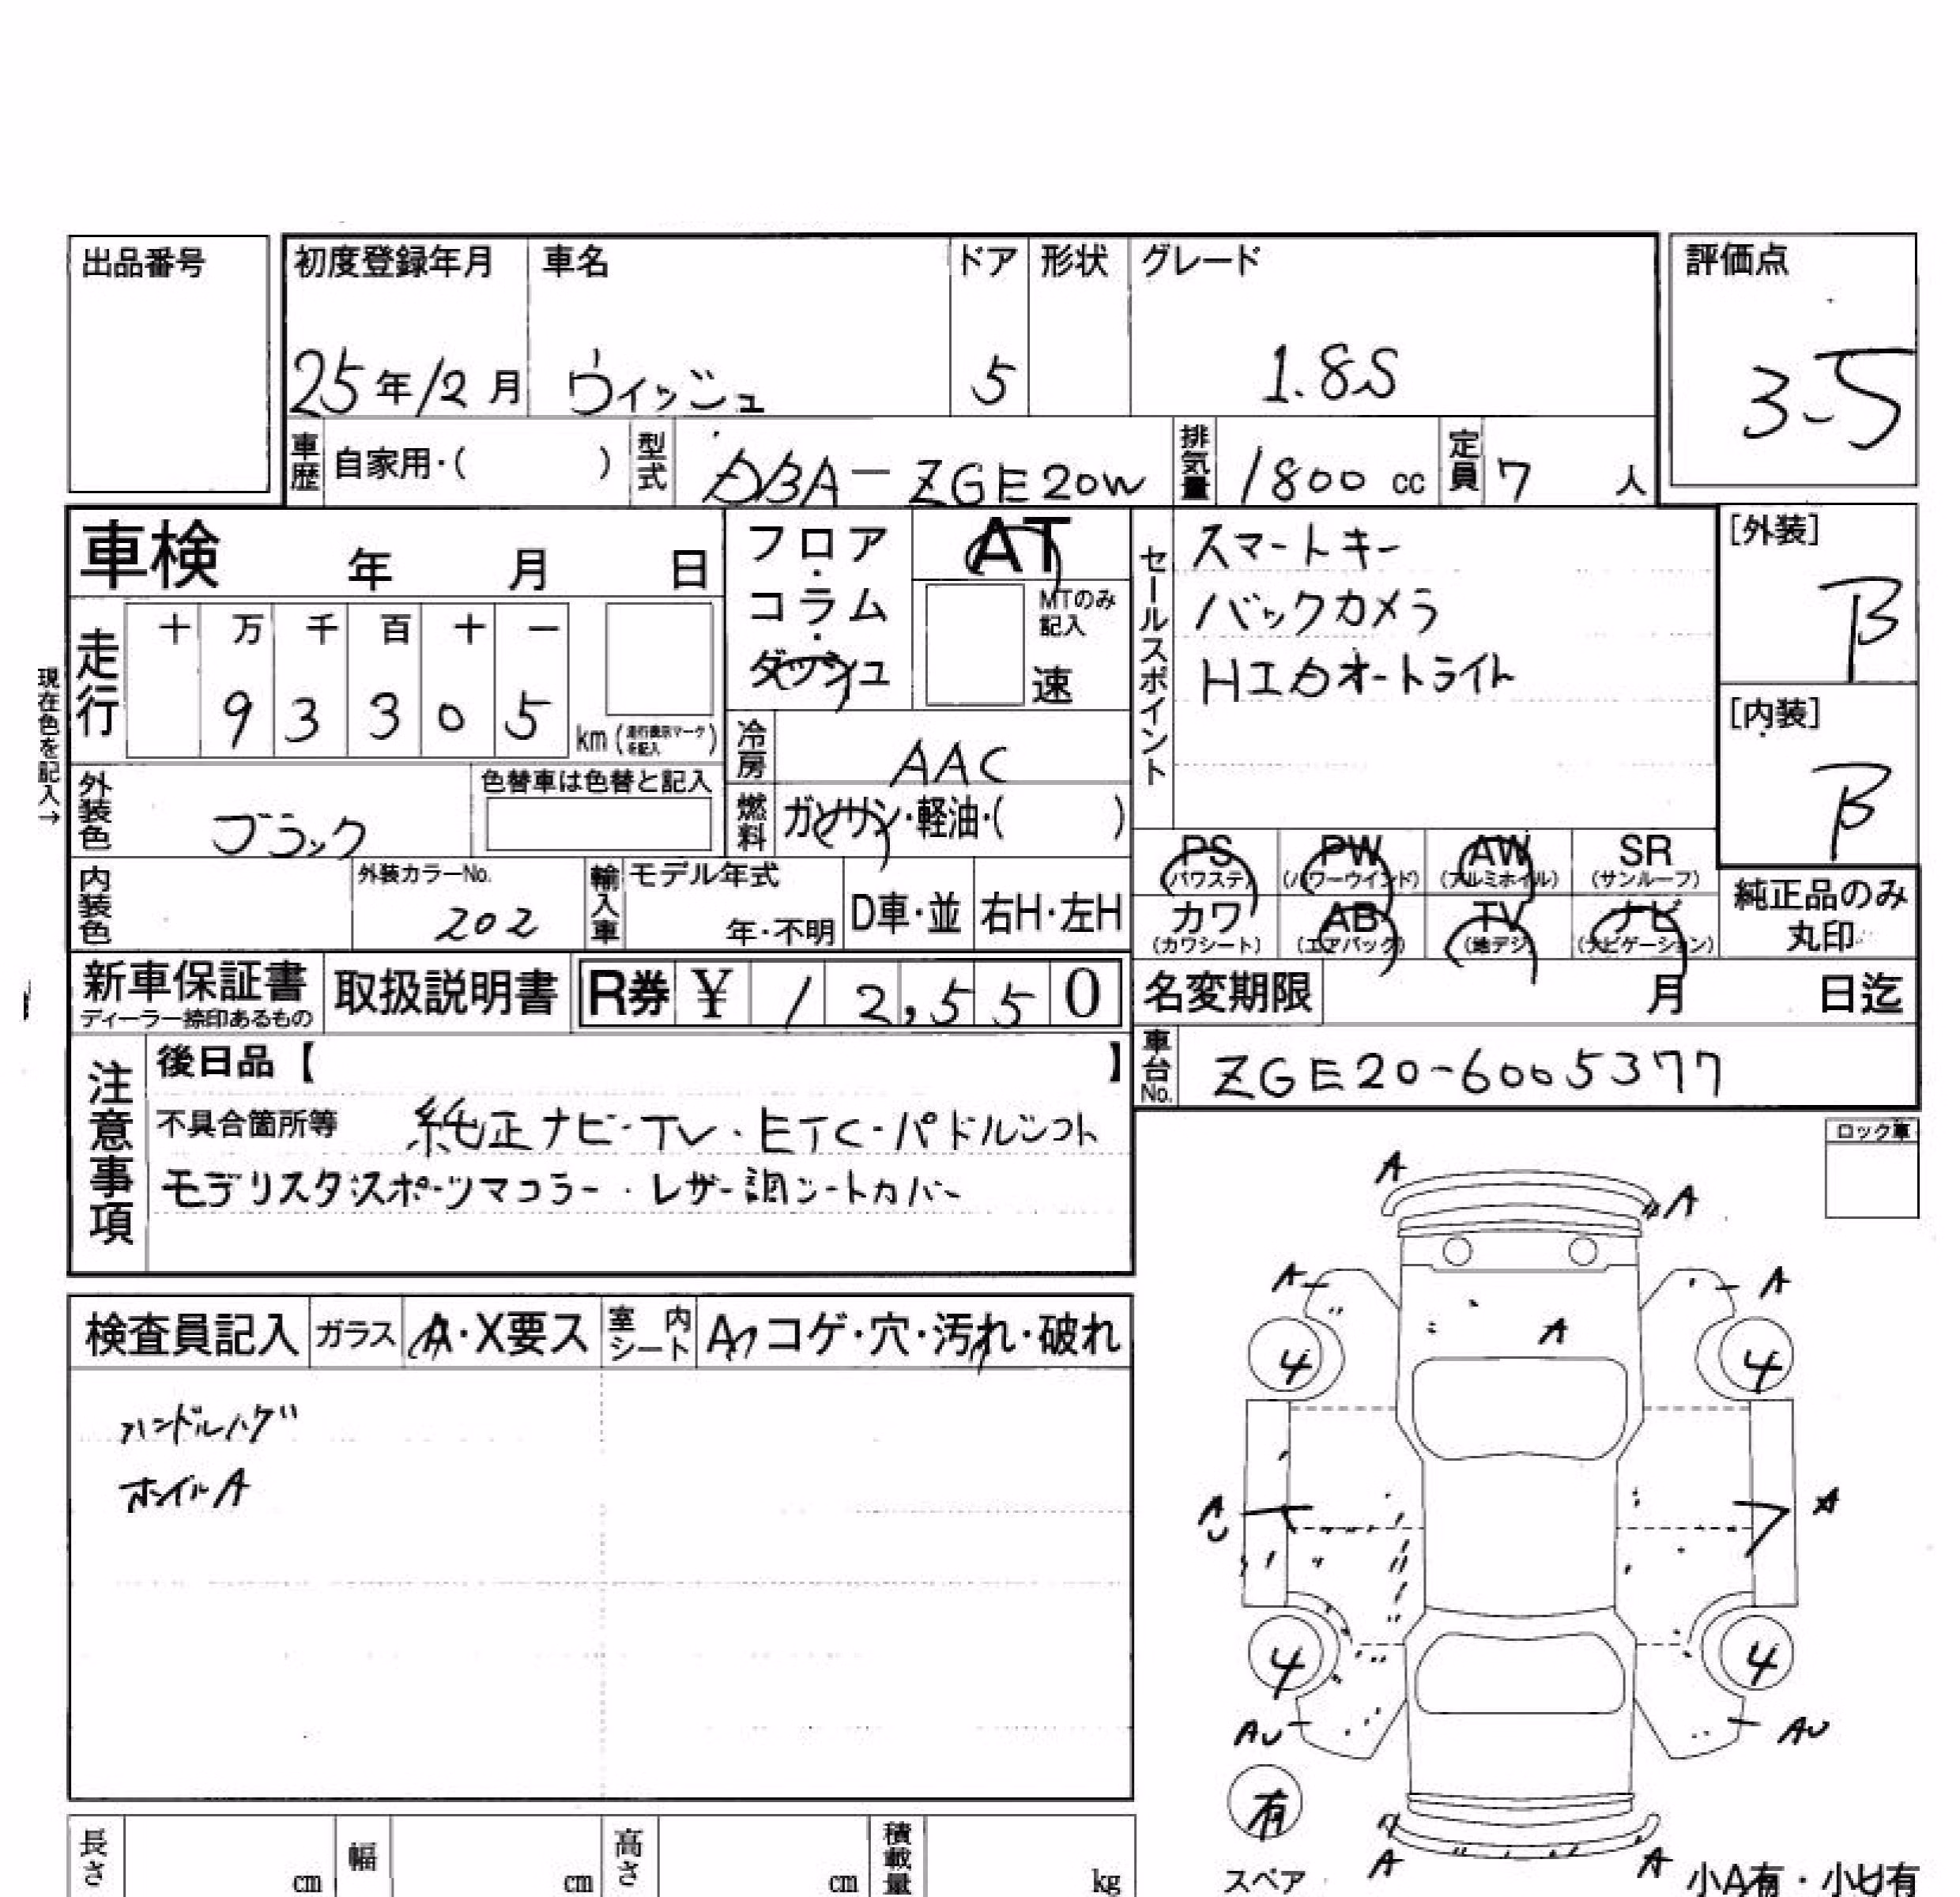 出品番号
初度登録年月 車名 ドア 形状 グレード 評価点
25年12月 ウィッシュ 5 1.8S 3.5
車歴 自家用・( ) 型式 DBA-ZGE20W 排気量 1800 cc 定員 7 人
車検 年 月 日
フロア・コラム・ダッシュ
AT
MTのみ記入
速
走行 十 万 千 百 十 一
9 3 3 0 5 km (走行表示マークを記入)
現在色を記入→
冷房 AAC
燃料 ガソリン・軽油・( )
外装色 ブラック 色替車は色替と記入
内装色 外装カラーNo. 202
輸入車 モデル年式 年・不明 D車・並 右H・左H
セールスポイント
スマートキー
バックカメラ
HIDオートライト
[外装] B
[内装] B
PS PW AW SR
(パワステ) (パワーウインド) (アルミホイル) (サンルーフ)
カワ AB TV ナビ
(カワシート) (エアバック) (地デジ) (ナビゲーション)
純正品のみ
丸印
新車保証書 取扱説明書 R券 ¥ 12,550
ディーラー捺印あるもの
名変期限 月 日迄
車台No. ZGE20-6005377
注意事項
後日品【 】
不具合箇所等 純正ナビ・TV・ETC・パドルシフト
モデリスタ・スポーツマフラー・レザー調シートカバー
ロック車
検査員記入 ガラス A・X要ス 室内シート A・コゲ・穴・汚れ・破れ
ハンドルハゲ
ホイルA
A
A
A A
A
4 4
A
U
A
4 4
AU AU
有
スペア
A A
小A有・小U有
長さ cm 幅 cm 高さ cm 積載量 kg